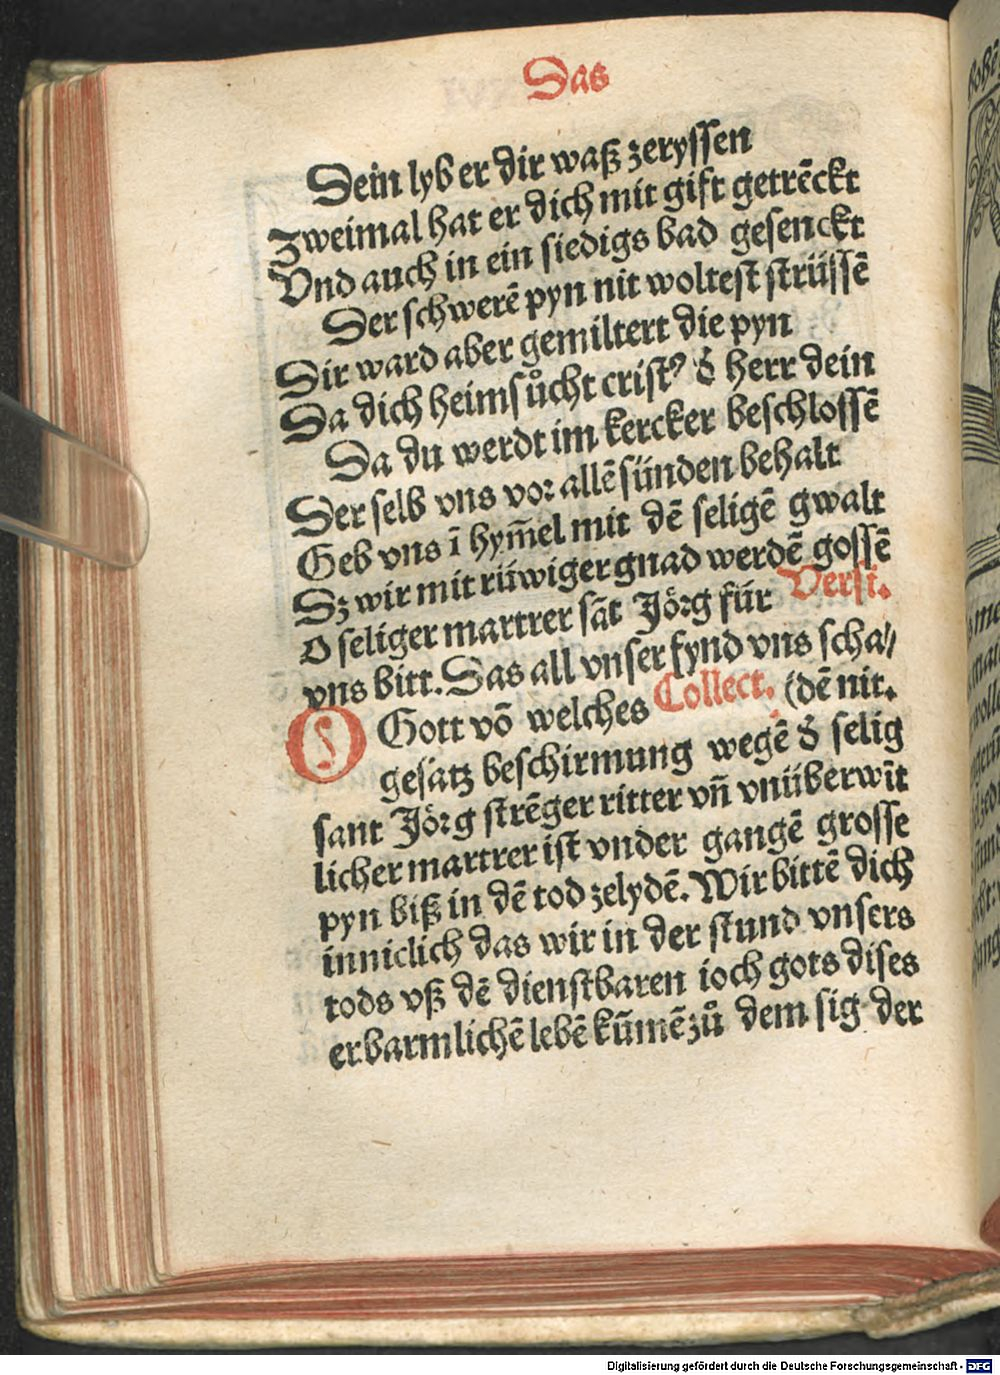 Das
Dein lyb er dir waß zeryssen
Zweimal hat er dich mit gift getrēckt
Vnd auch in ein siedigs bad gesenckt
Der schwerē pyn nit woltest strüssē
Dir ward aber gemiltert die pyn
Da dich heimsůcht crist⁹ d̄ herr dein
Da du werdt im kercker beschlossē
Der selb vns vor allē sünden behalt
Geb vns ī hym̄el mit dē seligē gwalt
Dz wir mit rüwiger gnad werdē gossē
O seliger martrer sāt Jörg für Versi.
vns bitt. Das all vnser fynd vns scha//
O Gott vō welches Collect. (dē nit.
gesatz beschirmung wegē d̄ selig
sant Jörg strēger ritter vn̄ vnüberwīt
licher martrer ist vnder gangē grosse
pyn biß in dē tod zelydē. Wir bittē dich
inniclich das wir in der stund vnsers
tods vß dē dienstbaren ioch gots dises
erbarmlichē lebē kūmē zů dem sig der
Digitalisierung gefördert durch die Deutsche Forschungsgemeinschaft - DFG